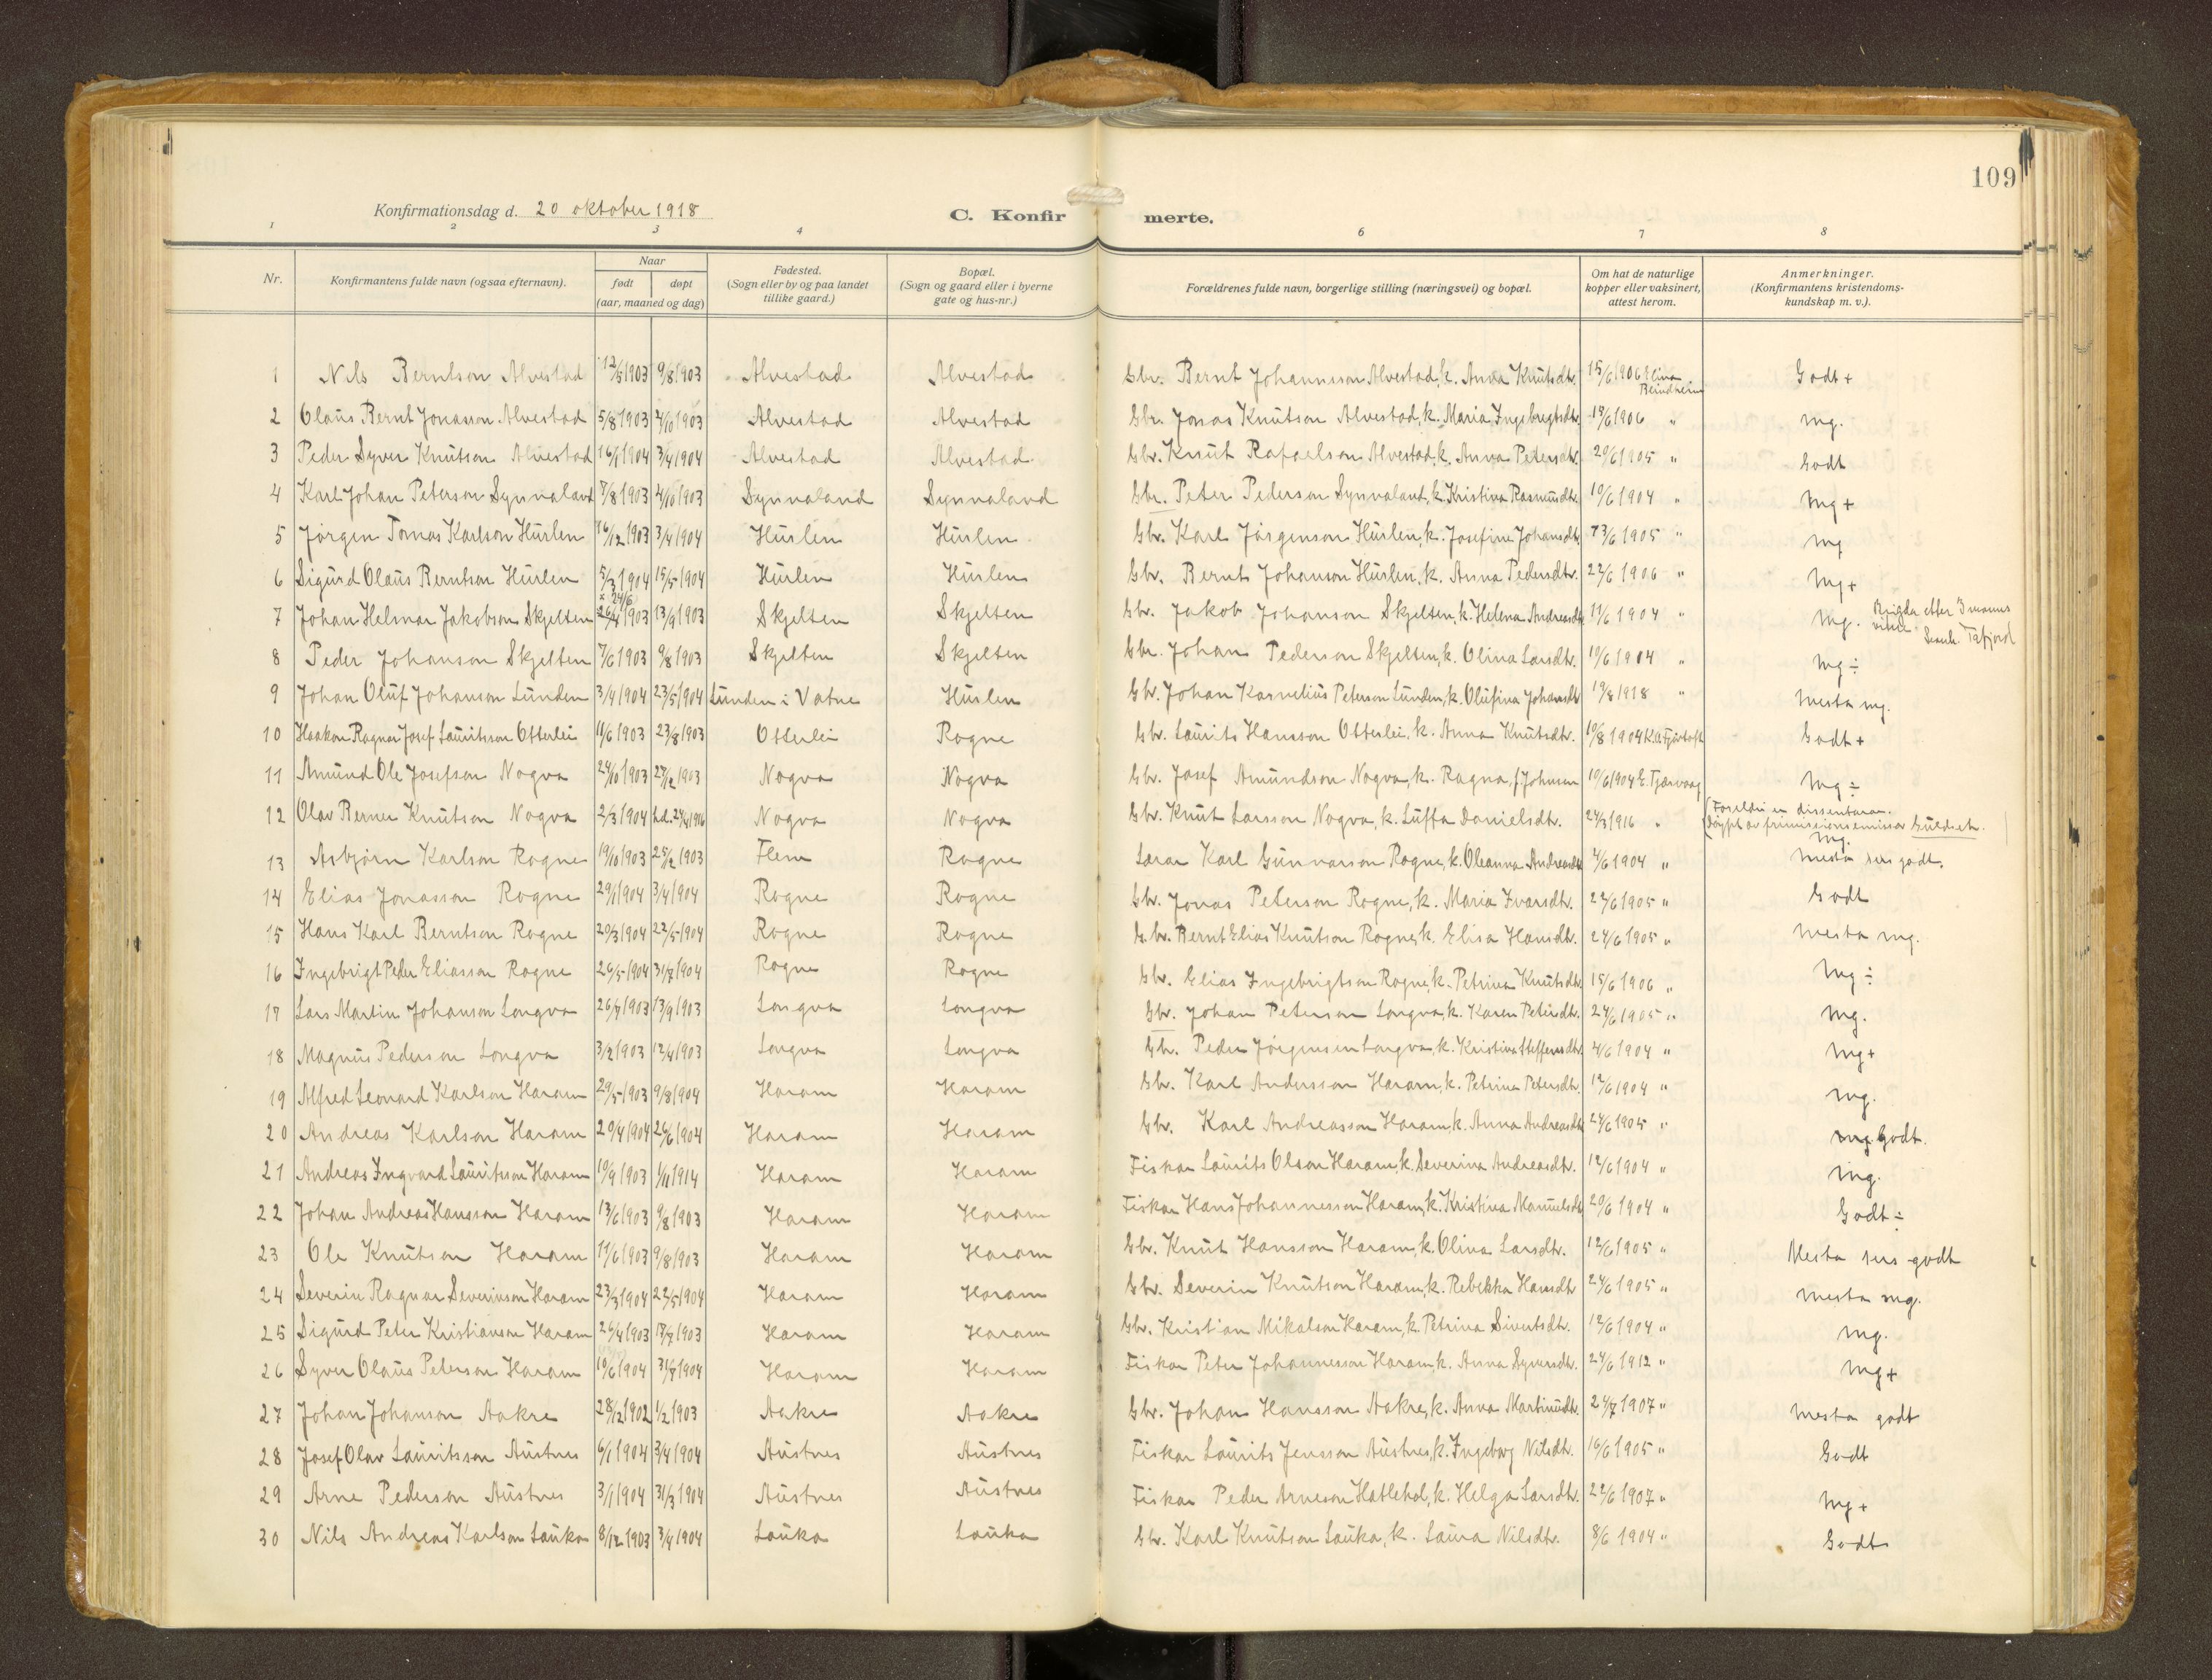 109
Konfirmationsdag d. 20 oktober 1918
C. Konfirmerte.
1 2 3 4 6 7 8
Nr. | Konfirmantens fulde navn (ogsaa efternavn). | Naar født døpt (aar, maaned og dag) | Fødested. (Sogn eller by og paa landet tillike gaard.) | Bopæl. (Sogn og gaard eller i byerne gate og hus-nr.) | Forældrenes fulde navn, borgerlige stilling (næringsvei) og bopæl. | Om hat de naturlige kopper eller vaksinert, attest herom. | Anmerkninger. (Konfirmantens kristendomskundskap m. v.).
1 Nils Berntson Alvestad 12/5 1903 9/8 1903 Alvestad Alvestad Gbr. Bernt Johannesson Alvestad, k. Anna Knutsdtr. 15/6 1906 Elina Blindheim Godt +
2 Olaus Bernt Jonasson Alvestad 5/8 1903 4/10 1903 Alvestad Alvestad Gbr. Jonas Knutson Alvestad, k. Maria Ingebrigtsdtr. 15/6 1906 " mg.
3 Peder Syver Knutson Alvestad 16/1 1904 3/4 1904 Alvestad Alvestad Gbr. Knut Rafaelson Alvestad, k. Anna Petersdtr. 20/6 1905 " Godt
4 Karl Johan Peterson Synnaland 7/8 1903 4/10 1903 Synnaland Synnaland Gbr. Peter Pederson Synnaland, k. Kristina Rasmusdtr. 10/6 1904 " mg +
5 Jørgen Tomas Karlson Hurlen 16/12 1903 3/4 1904 Hurlen Hurlen Gbr. Karl Jørgenson Hurlen, k. Josefine Johansdtr. 23/6 1905 " mg
6 Sigurd Olaus Berntson Hurlen 5/3 1904 15/5 1904 Hurlen Hurlen Gbr. Bernt Johanson Hurlen, k. Anna Pedersdtr. 22/6 1906 " mg +
x 24/6
7 Johan Helmar Jakobson Skjelten 26/4 1903 13/9 1903 Skjelten Skjelten Gbr. Jakob Johanson Skjelten, k. Helena Andreasdtr. 11/6 1904 " mg. etter 3 Tafjord
8 Peder Johanson Skjelten 7/6 1903 9/8 1903 Skjelten Skjelten Gbr. Johan Pederson Skjelten, k. Olina Larsdtr. 10/6 1904 " mg ÷
9 Johan Oluf Johanson Lunden 3/4 1904 23/5 1904 Lunden i Vatne Hurlen Gbr. Johan Kornelius Peterson Lunden, k. Olufina Johansdtr. 19/8 1918 " Mesta mg.
10 Haakon Ragnar Josef Lauritsson Otterlei 11/6 1903 23/8 1903 Otterlei Rogne Gbr. Laurits Hansson Otterlei, k. Anna Knutsdtr. 10/8 1904 K. A. Fjørtoft Godt +
11 Amund Ole Josefson Nogva 24/10 1903 27/12 1903 Nogva Nogva Gbr. Josef Amundson Nogva, k. Ragna, f. Johnsen 10/6 1904 E. Tjærvaag mg ÷
12 Olav Berner Knutson Nogva 2/3 1904 h.d. 24/4 1916 Nogva Nogva Gbr. Knut Larsson Nogva, k. Luffa Danielsdtr. 24/3 1916 " (Foreldri er dissentarar. Døypt av frimisjonsemissær Guldseth. mg.
13 Asbjørn Karlson Rogne 19/10 1903 25/12 1903 Flem Rogne Lærar Karl Gunnarson Rogne, k. Oleanna Andreasdtr. 4/6 1904 " Mesta sers godt.
14 Elias Jonasson Rogne 29/1 1904 3/4 1904 Rogne Rogne Gbr. Jonas Peterson Rogne, k. Maria Ivarsdtr. 22/6 1905 " Godt
15 Hans Karl Berntson Rogne 20/3 1904 22/5 1904 Rogne Rogne Gbr. Bernt Elias Knutson Rogne, k. Elisa Hansdtr. 24/6 1905 " Mesta mg.
16 Ingebrigt Peder Eliasson Rogne 26/5 1904 31/7 1904 Rogne Rogne Gbr. Elias Ingebrigtson Rogne, k. Petrina Knutsdtr. 15/6 1906 " Mg ÷
17 Lars Martin Johanson Longva 26/7 1903 13/9 1903 Longva Longva Gbr. Johan Peterson Longva, k. Karen Petersdtr. 24/6 1905 " mg.
18 Magnus Pederson Longva 3/2 1903 12/4 1903 Longva Longva Gbr. Peder Jørgensen Longva, k. Kristina Steffensdtr. 4/6 1904 " mg +
19 Alfred Leonard Karlson Haram 29/5 1903 9/8 1904 Haram Haram Gbr. Karl Andersson Haram, k. Petrina Petersdtr. 12/6 1904 " mg.
20 Andreas Karlson Haram 20/4 1904 26/6 1904 Haram Haram Gbr. Karl Andreasson Haram, k. Anna Andreasdtr. 24/6 1905 " mg Godt.
21 Andreas Ingvard Lauritsson Haram 10/9 1903 1/11 1914 Haram Haram Fiskar Laurits Olson Haram, k. Severina Andreasdtr. 12/6 1904 " mg.
22 Johan Andreas Hansson Haram 13/6 1903 9/8 1903 Haram Haram Fiskar Hans Johannesson Haram, k. Kristina Manuelsdtr. 20/6 1904 " Godt ÷
23 Ole Knutson Haram 11/6 1903 9/8 1903 Haram Haram Gbr. Knut Hansson Haram, k. Olina Larsdtr. 12/6 1905 " Mesta sers godt
24 Severin Ragnar Severinson Haram 23/3 1904 22/5 1904 Haram Haram Gbr. Severin Knutson Haram, k. Rebekka Hansdtr. 24/6 1905 " Mesta mg.
25 Sigurd Peter Kristianson Haram 26/4 1903 19/7 1903 Haram Haram Gbr. Kristian Mikalson Haram, k. Petrina Sivertsdtr. 12/6 1904 " mg.
26 Syver Olaus Peterson Haram 10/6 1904 31/7 1904 Haram Haram Fiskar Peter Johannesson Haram, k. Anna Syversdtr. 24/6 1912 " mg +
27 Johan Johanson Aakre 28/12 1902 1/2 1903 Aakre Aakre Gbr. Johan Hansson Aakre, k. Anna Martinusdtr. 24/7 1907 " Mesta godt
28 Josef Olav Lauritsson Austnes 6/1 1904 3/4 1904 Austnes Austnes Fiskar Laurits Jensson Austnes, k. Ingeborg Nilsdtr. 16/6 1905 " Godt
29 Arne Pederson Austnes 3/1 1904 31/3 1904 Austnes Austnes Fiskar Peder Arneson Hatlehol, k. Helga Larsdtr. 22/6 1907 " mg +
30 Nils Andreas Karlson Lauka 8/12 1903 3/4 1904 Lauka Lauka Gbr. Karl Knutson Lauka, k. Laura Nilsdtr. 8/6 1904 " Godt